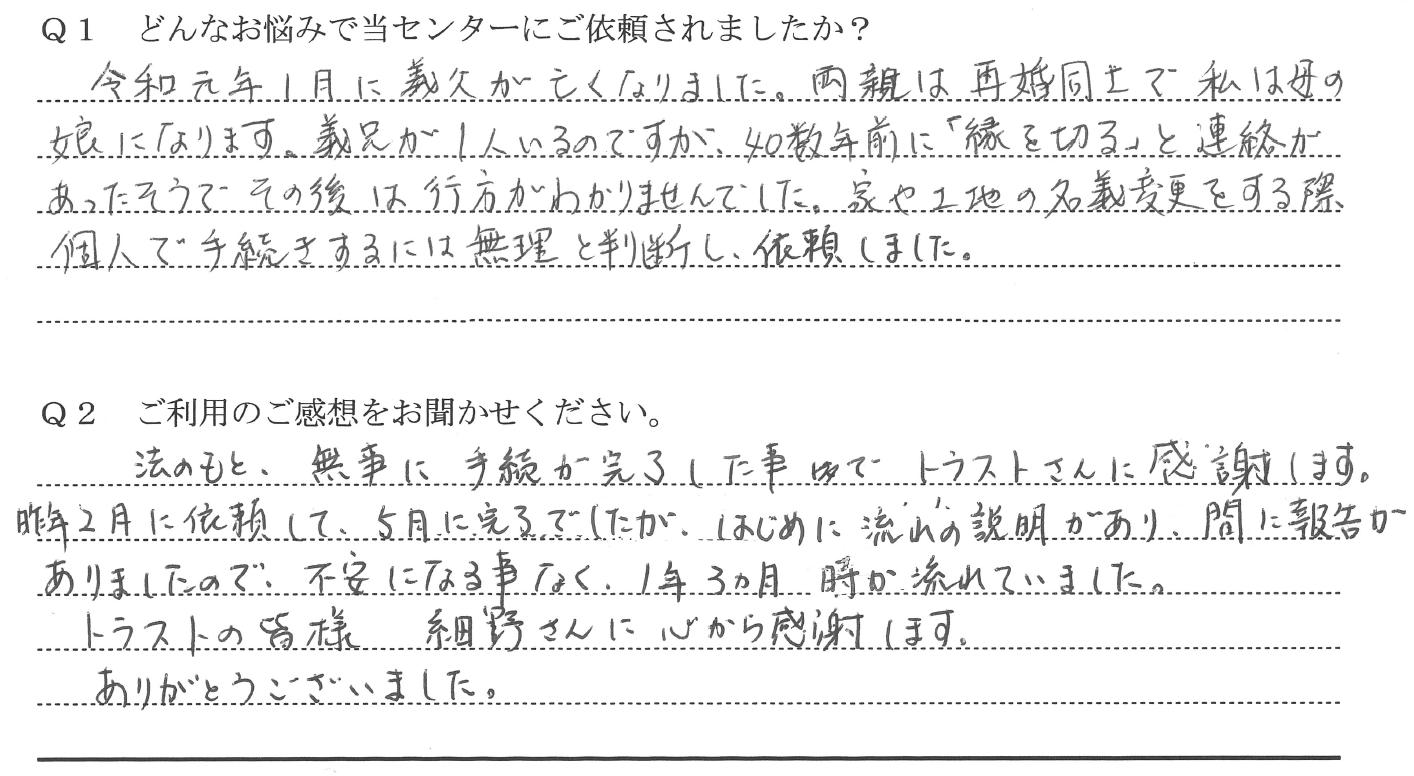 Q1 どんなお悩みで当センターにご依頼されましたか？
令和元年1月に義父が亡くなりました。両親は再婚同士で私は母の
娘になります。義兄が1人いるのですが、40数年前に「縁を切る」と連絡が
あったそうでその後は行方がわかりませんでした。家や土地の名義変更をする際
個人で手続きするには無理と判断し、依頼しました。
Q2 ご利用のご感想をお聞かせください。
法のもと、無事に手続が完了した事 トラストさんに感謝します。
昨年2月に依頼して、5月に完了でしたが、はじめに流れの説明があり、間に報告が
ありましたので、不安になる事なく、1年3ヵ月 時が流れていました。
トラストの皆様 細野さんに心から感謝します。
ありがとうございました。